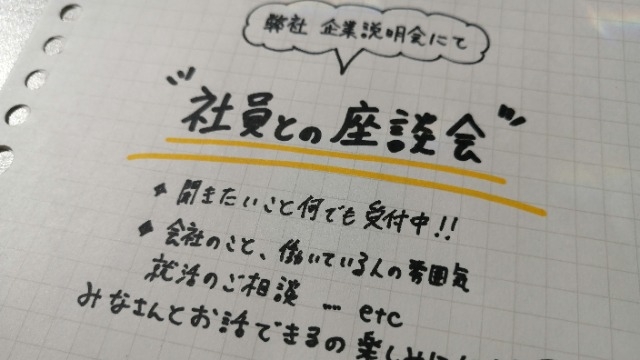 弊社 企業説明会にて
"社員との座談会"
◆ 聞きたいこと何でも受付中!!
◆ 会社のこと、働いている人の雰囲気
就活のご相談 … etc
みなさんとお話できるの楽しみに